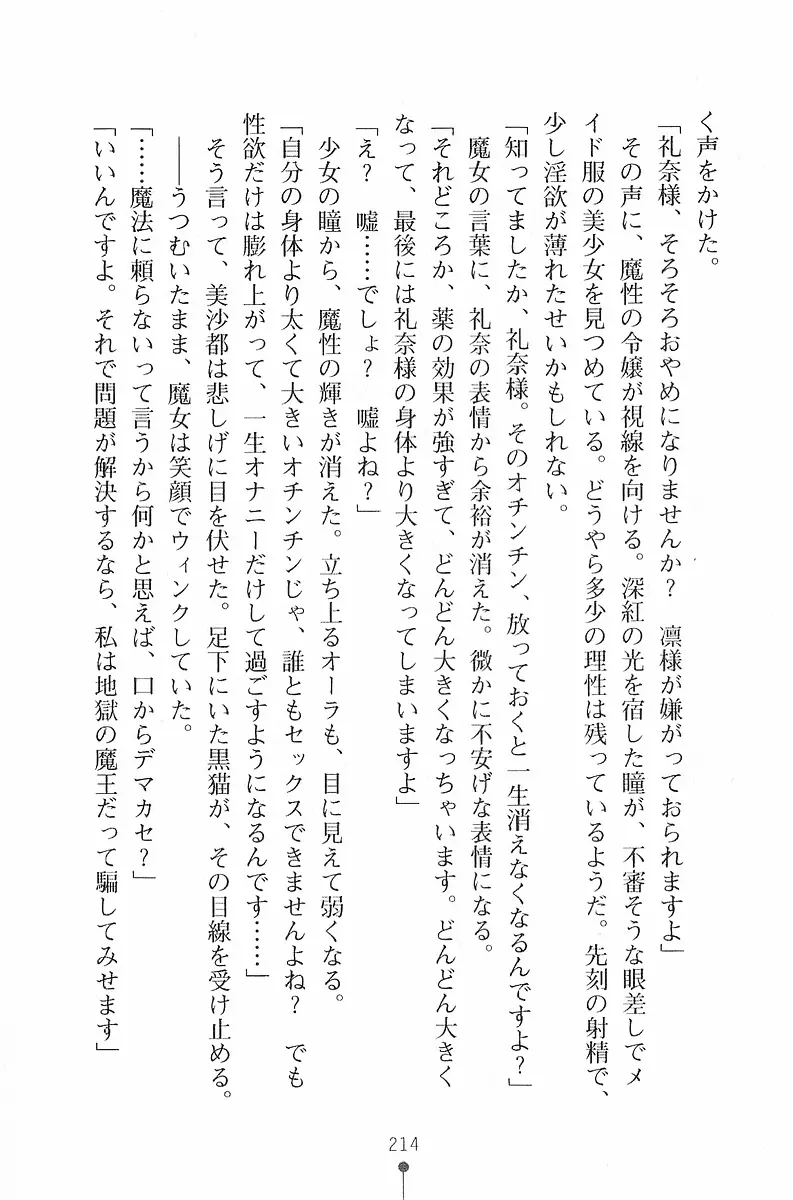 く声をかけた。
「礼奈様、そろそろおやめになりませんか？　凛様が嫌がっておられますよ」
その声に、魔性の令嬢が視線を向ける。深紅の光を宿した瞳が、不審そうな眼差しでメ
イド服の美少女を見つめている。どうやら多少の理性は残っているようだ。先刻の射精で、
少し淫欲が薄れたせいかもしれない。
「知ってましたか、礼奈様。そのオチンチン、放っておくと一生消えなくなるんですよ？」
魔女の言葉に、礼奈の表情から余裕が消えた。微かに不安げな表情になる。
「それどころか、薬の効果が強すぎて、どんどん大きくなっちゃいます。どんどん大きく
なって、最後には礼奈様の身体より大きくなってしまいますよ」
「え？　嘘……でしょ？　嘘よね？」
少女の瞳から、魔性の輝きが消えた。立ち上るオーラも、目に見えて弱くなる。
「自分の身体より太くて大きいオチンチンじゃ、誰ともセックスできませんよね？　でも
性欲だけは膨れ上がって、一生オナニーだけして過ごすようになるんです……」
そう言って、美沙都は悲しげに目を伏せた。足下にいた黒猫が、その目線を受け止める。
――うつむいたまま、魔女は笑顔でウィンクしていた。
「……魔法に頼らないって言うから何かと思えば、口からデマカセ？」
「いいんですよ。それで問題が解決するなら、私は地獄の魔王だって騙してみせます」
214